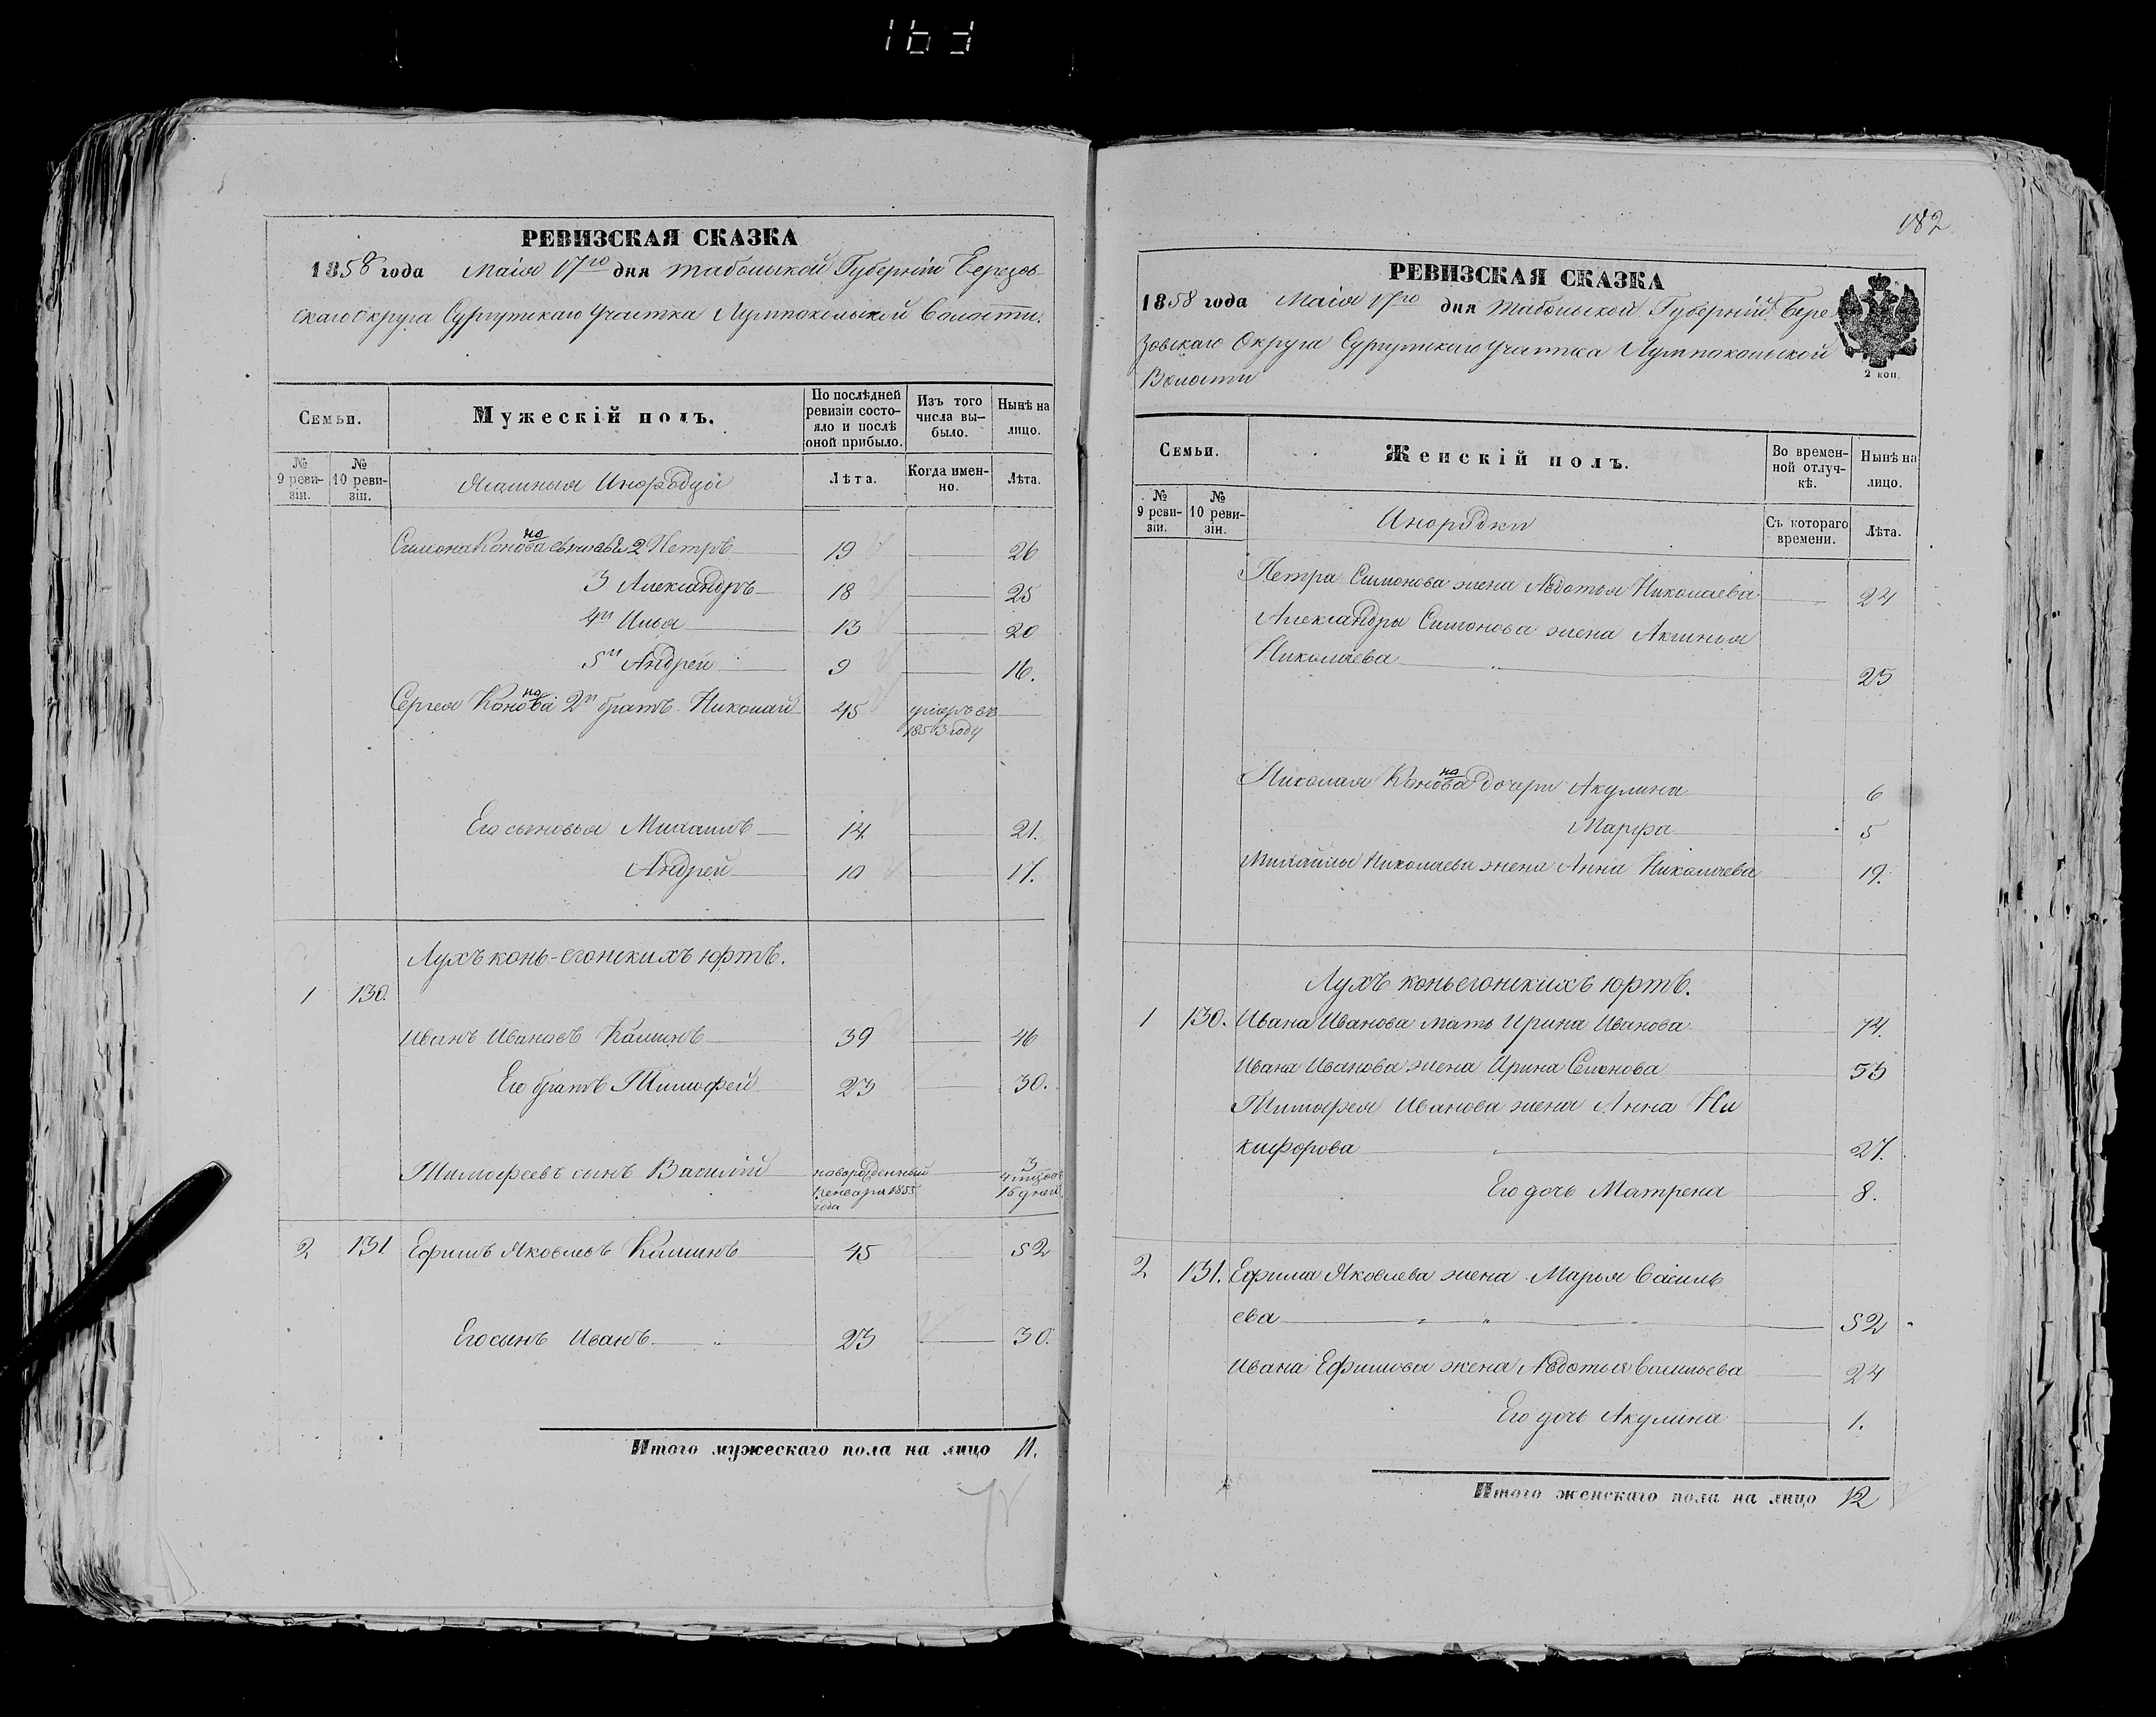 163
РЕВИЗСКАЯ СКАЗКА
1858 года Маія 17го дня Тобольской Губерніи Березов-
скаго округа Сургутскаго участка Лумпокольской волости.
Семьи.
Мужескій полъ.
По послѣдней ревизіи состо-яло и послѣ оной прибыло.
Изъ того числа вы-было.
Нынѣ на лицо.
№ 9 реви-зіи.
№ 10 реви-зіи.
Ясашныя Инородцы
Лѣта.
Когда имен-но.
Лѣта.
Симона Конова сыновья 2 Петръ 19 26
но
3 Александръ 18 25
4й Илья 13 20
5й Андрей 9 16.
Сергея Конова 2й братъ Николай 45 умеръ въ 1853 году
но
Его сыновья Михаилъ 14 21.
Андрей 10 17.
Лухъ конь-егонскихъ юртъ.
1 130.
Иванъ Ивановъ Калинъ 39 46
Его братъ Тимофей 23 30.
Тимофеевъ сынъ Василій новорожденный 1855 года 3 дней
2 131 Ефимъ Яковлевъ Калинъ 45 52
Его сынъ Иванъ 23 30.
Итого мужескаго пола на лицо 11.
182
РЕВИЗСКАЯ СКАЗКА
1858 года Маія 17го дня Тобольской Губерніи Бере
зовскаго Округа Сургутскаго участка Лумпокольской
Волости
2 коп.
Семьи.
Женскій полъ.
Во времен-ной отлуч-кѣ.
Нынѣ на лицо.
№ 9 реви-зіи.
№ 10 реви-зіи.
Инородки
Съ котораго времени.
Лѣта.
Петра Симонова жена Авдотья Николаева 24
Александра Симонова жена Аксинья
Николаева 25
Николая Конова дочери Акулина 6
но
Марфа 5
Михайлы Николаева жена Анна Николаева 19.
Лухъ коньегонскихъ юртъ.
1 130. Ивана Иванова мать Ирина Иванова 74.
Ивана Иванова жена Ирина Семонова 53
Тимофея Иванова жена Анна Ни
кифорова 27.
Его дочь Матрена 8.
2 131. Ефима Яковлева жена Марья Василь
ева 52
Ивана Ефимова жена Авдотья Васильева 24
Его дочь Акулина 1.
Итого женскаго пола на лицо 12